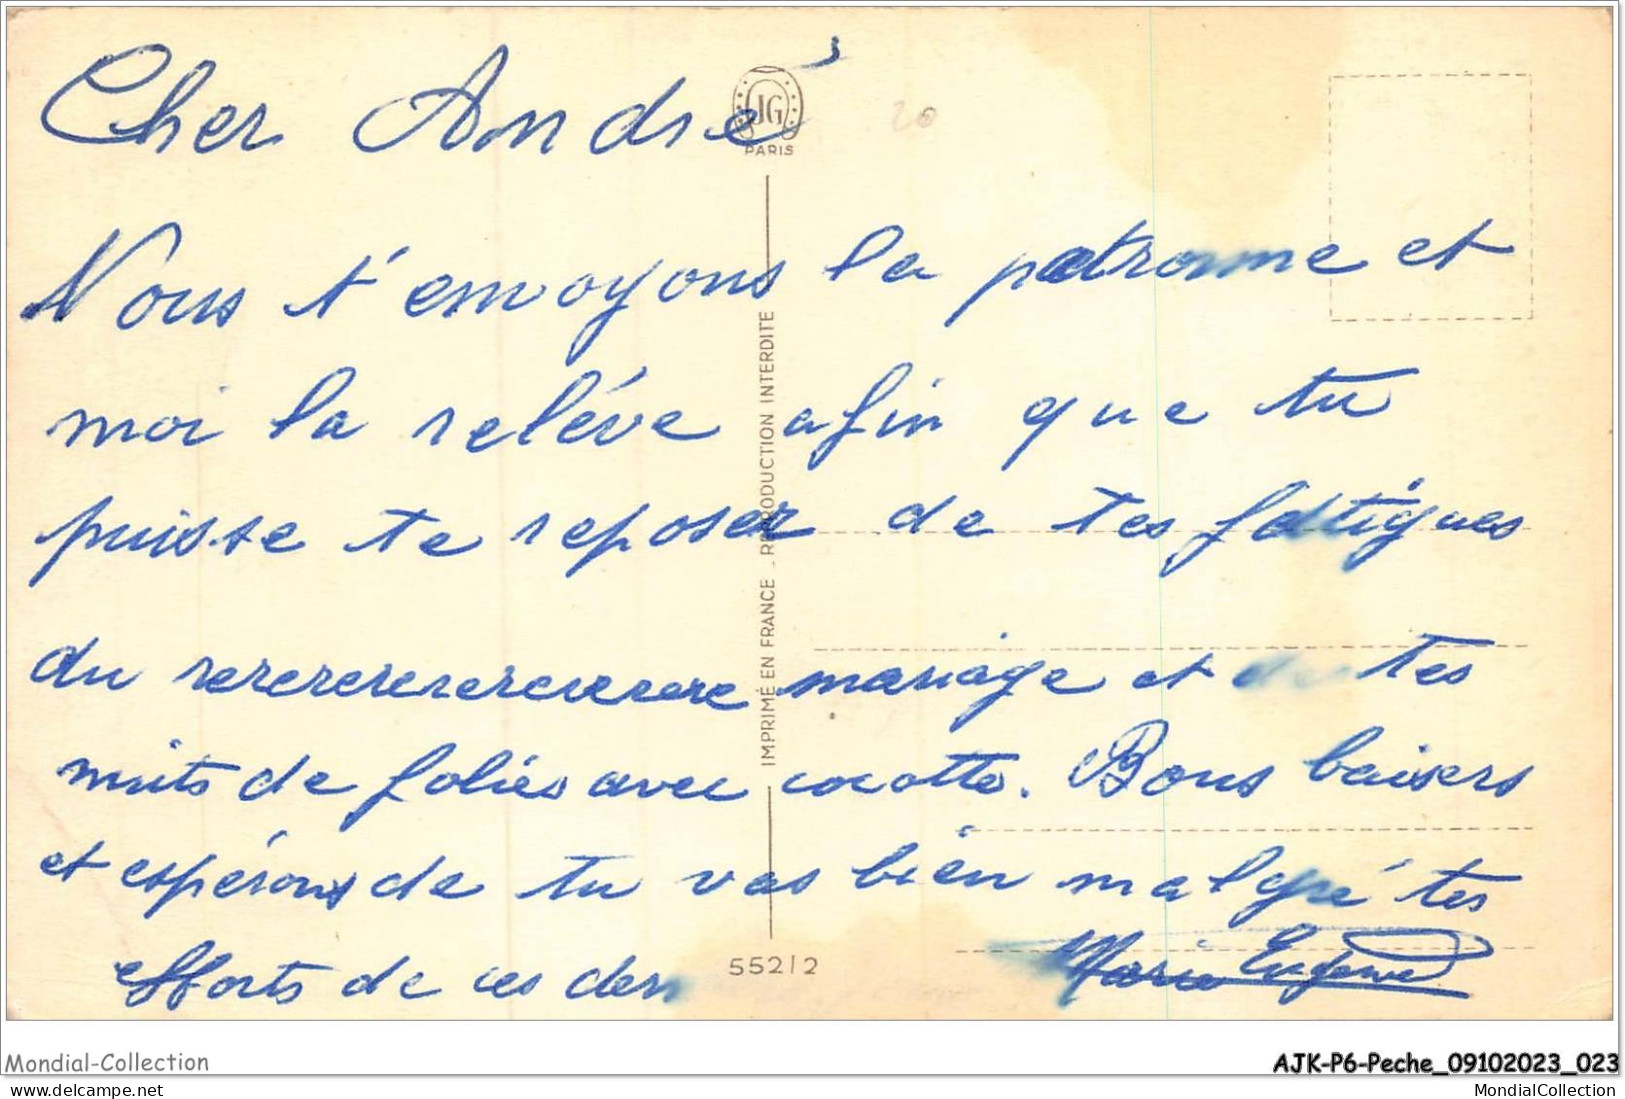 Cher André
JG
PARIS
20
Nous t'envoyons la patronne et
moi la reléve afin que tu
puisse te reposer de tes fatigues
du rererererererererere mariage et de tes
nuits de foliés avec cocotte. Bons baisers
et espérons de tu vas bien malgré tes
efforts de ces der
Marie Eugenie
IMPRIMÉ EN FRANCE _ REPRODUCTION INTERDITE
552/2
Mondial-Collection
AJK-P6-Peche_09102023_023
delcampe.net
MondialCollection